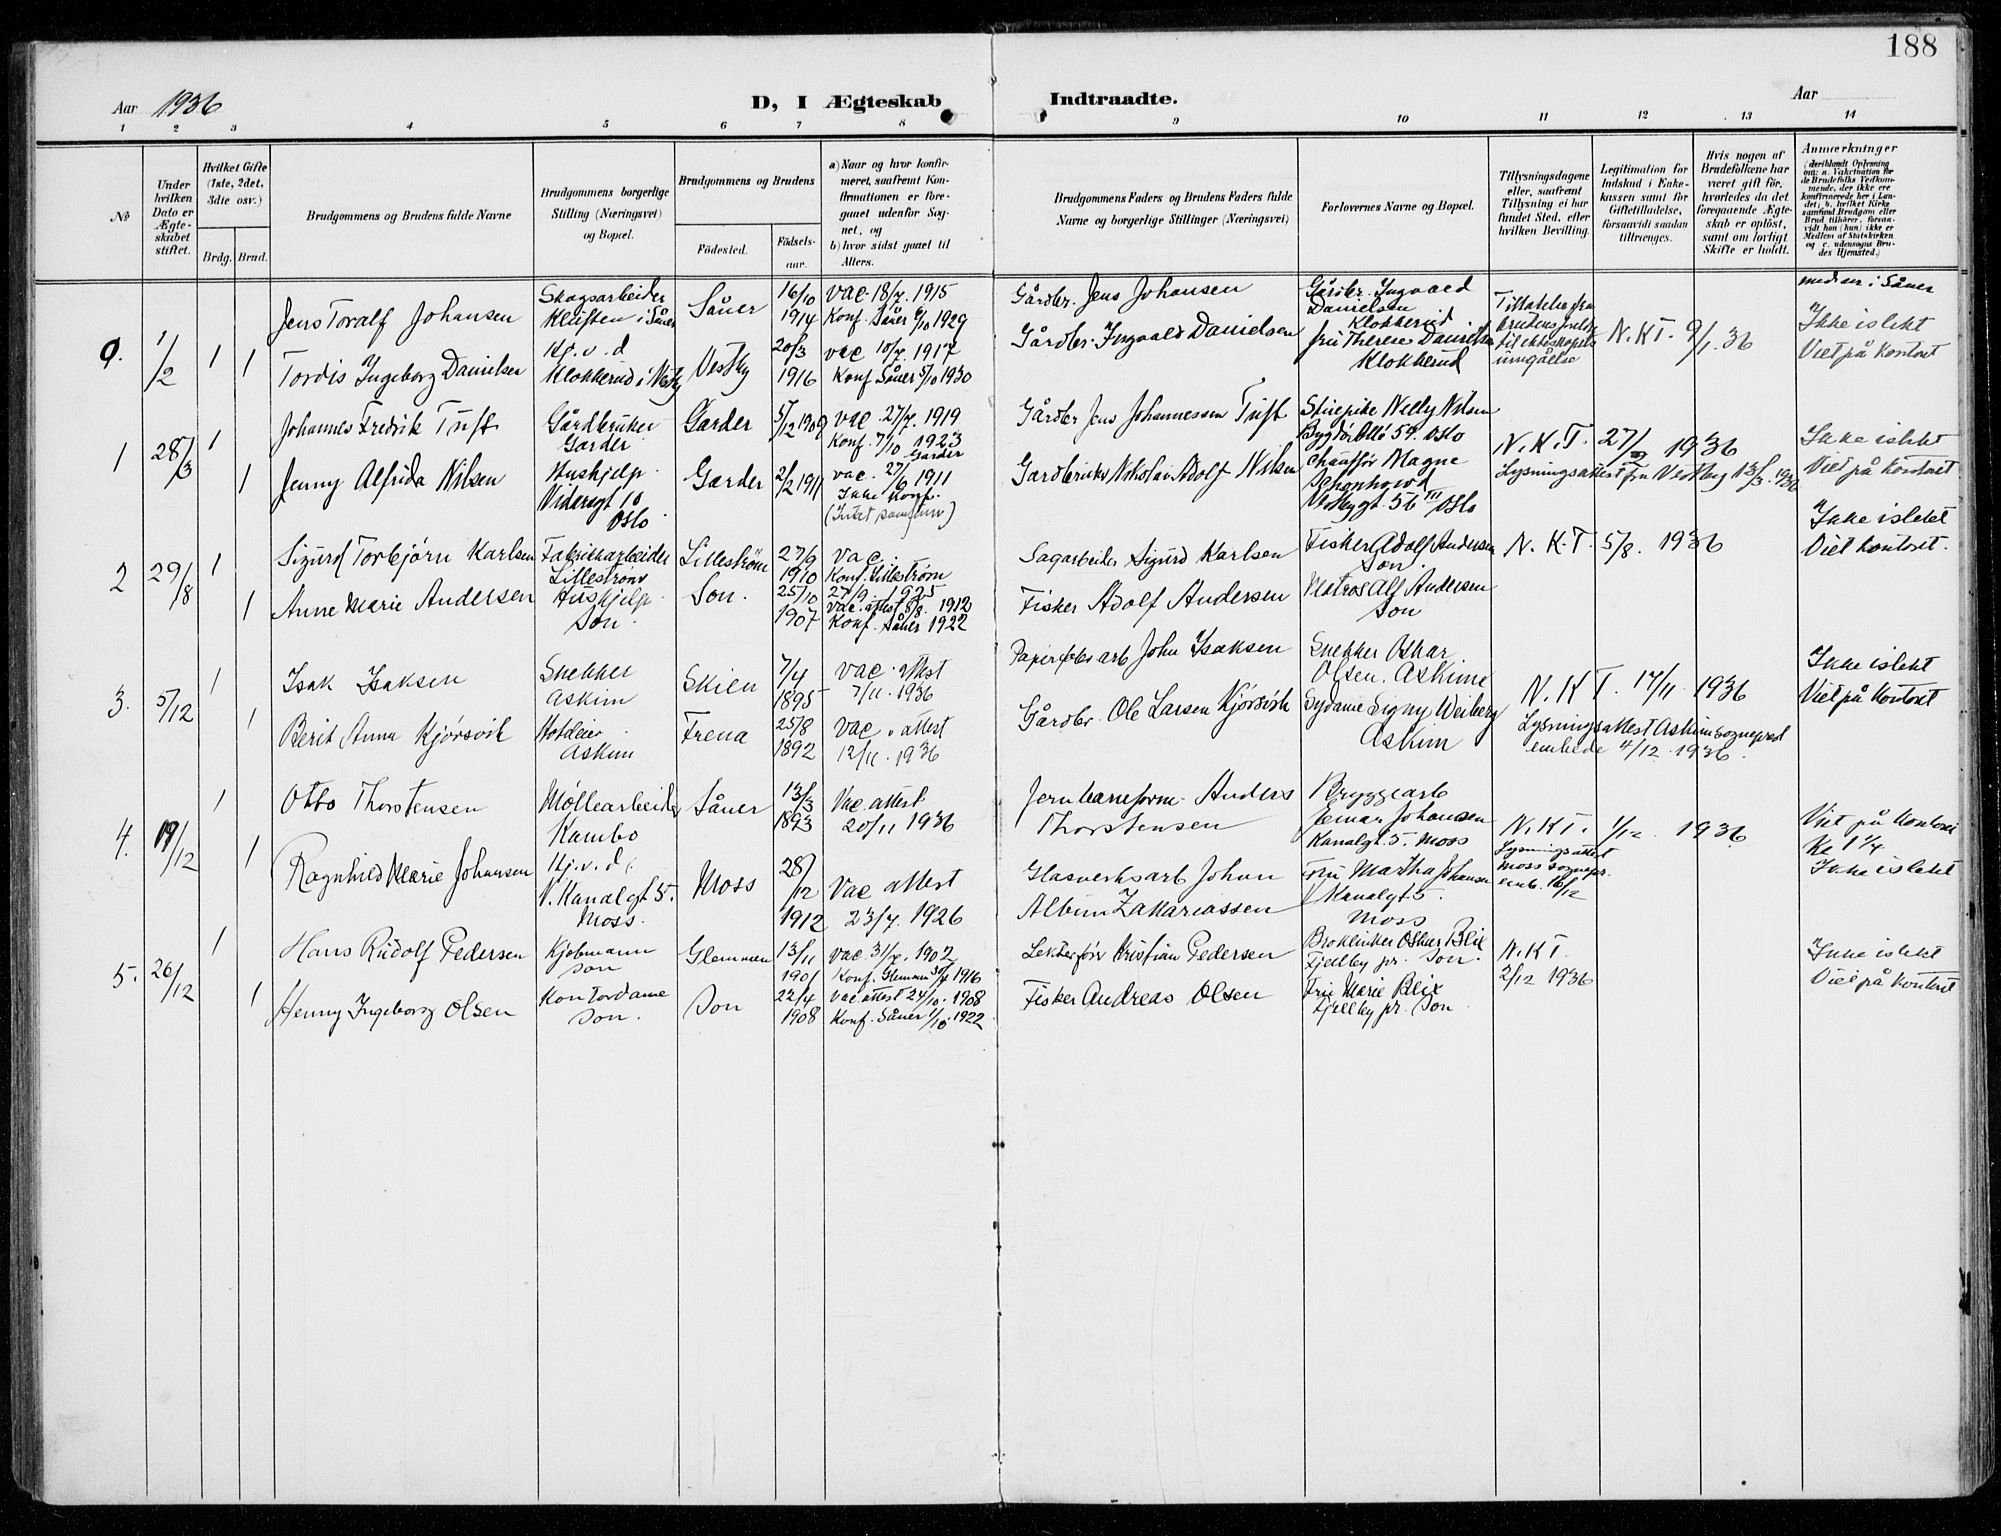 188
Aar 1936
D, I Ægteskab Indtraadte.
Aar
1 2 3 4 5 6 7 8 9 10 11 12 13 14
No
Under hvilken Dato er Ægteskabet stiftet.
Hvilket Gifte (1ste, 2det, 3die osv.)
Brdg. Brud.
Brudgommens og Brudens fulde Navne
Brudgommens borgerlige Stilling (Næringsvei) og Bopæl.
Brudgommens og Brudens
Födested.
Födselsaar.
a) Naar og hvor konfirmeret, saafremt Konfirmationen er foregaaet udenfor Sognet, og
b) hvor sidst gaaet til Alters.
Brudgommens Faders og Brudens Faders fulde Navne og borgerlige Stillinger (Næringsvei)
Forlovernes Navne og Bopæl.
Tillysningsdagene eller, saafremt Tillysning ei har fundet Sted, efter hvilken Bevilling.
Legitimation for Indskud i Enkekassen samt for Giftetilladelse, forsaavidt saadan tiltrænges.
Hvis nogen af Brudefolkene har været gift för, hvorledes da det foregaaende Ægteskab er oplöst, samt om lovligt Skifte er holdt.
Anmerkninger
(deriblandt Oplysning om: a. Vakcination for de Brudefolks Vedkommende, der ikke ere konfirmerede her i Landet; b. hvilket Kirkesamfund Brudgom eller Brud tilhörer, forsaavidt han (hun) ikke er Medlem af Statskirken og c. udensogns Brudes Hjemsted.)
0. 1/2 1 Jens Toralf Johansen
Skogsarbeider Kluften i Såner
Såner
16/10 1914
vac. 18/7. 1915
Konf. Såner 6/10 1929
Gårdbr. Jens Johansen
Gårdbr. Ingvald Danielsen Klokkerud
1 Tordis Ingeborg Danielsen
Hj. v. d Klokkerud i Vestby
Vestby
20/3 1916
vac 10/7. 1917
Konf Såner 5/10 1930
Gårdbr. Ingvald Danielsen
fru Therese Danielsen Klokkerud
N. K T. 9/1. 36
Ikke i slekt
Viet på kontoret
1 28/3 1 Johannes Fredrik Tuft
Gårdbruker Garder
Garder
5/12 1909
vac 27/7. 1919
Konf. 7/10 1923 Garder
Gårdbr Jens Johannessen Tuft
Stuepike Nelly Nilsen
Bygdø Allé 59. Oslo
1 Jenny Alfrida Nilsen
Hushjelp Videsgt 10 Oslo
Garder
2/2 1911
vac. 27/6 1911
Ikke Konf.
Gardbruker Nikolai Adolf Nilsen
Chauffør Magne
Oslo
N. K. T. 27/2 1936
Lysningsattest fra Vestby 13/3. 1936
Ikke i slekt
Viet på kontoret
2 29/8 1 Sigurd Torbjörn Karlsen
Fabrikkarbeider Lilleström
Lilleström
27/9 1910
vac.
Konf. Lillestrøm 27/9. 1925
Sagarbeider Sigurd Karlsen
Fisker Adolf Andersen Son.
1 Anne Marie Andersen
Hushjelp Son.
Son.
25/10 1907
Vac. attest 8/8. 1912
Konf. Såner 1922
Fisker Adolf Andersen
Matros Alf Andersen Son
N. K. T. 5/8. 1936
Ikke i slekt
Viet kontoret.
3. 5/12 1 Isak Isaksen
Snekker Askim
Skien
7/4 1895
Vac. attest 7/11. 1936
Papirfabr arb John Isaksen
Snekker Oskar Olsen. Askim
1 Berit Anna Kjörsvik
Hotdeier Askim
Frena
25/8 1892
Vac. attest 12/11. 1936
Gårdbr. Ole Larsen Kjörsvik
Sydame Signy Weiberg Askim
N. K T. 17/11 1936
Lysningsattest Askim sogneprest embede 4/12. 1936.
Ikke i slekt
Viet på kontoret
4. 19/12 1 Otto Thorstensen
Møllearbeider Kambo
Såner
13/3 1893
Vac. attest 20/11 1936
Jernbaneform. Anders Thorstensen
Bryggearb Johansen Kanalgt. 5. Moss
1 Ragnhild Marie Johansen
Hj. v. d. V. Kanalgt 5. Moss.
Moss
28/12 1912
Vac attest 23/7. 1926
Glasverksarb Johan Albin Zakariassen
Fru Martha Johansen Kanalgt 5. Moss
N. K T. 1/12. 1936
Lysningsattest Moss sognepr. emb. 16/12
Viet på kontoret
Kl 1 1/4
Ikke i slekt
5. 26/12 1 Hans Rudolf Pedersen
Kjøbmann Son
Glemmen
13/11 1901
vac. 31/7. 1902
Konf. Glemmen 1916
Lekterför Kristian Pedersen
Oskar Blix
Fjellby pr. Son.
1 Henny Ingeborg Olsen
Kontordame Son.
Son
22/4 1908
Vac attest 24/10. 1908
Konf. Såner 1/10. 1922.
Fisker Andreas Olsen
Fru Marie Blix
Fjellby pr. Son
N. K T. 2/12 1936
Ikke i slekt
Viet på kontoret